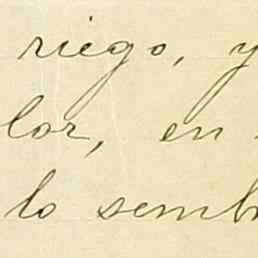 riego, y
lor, en
lo semb